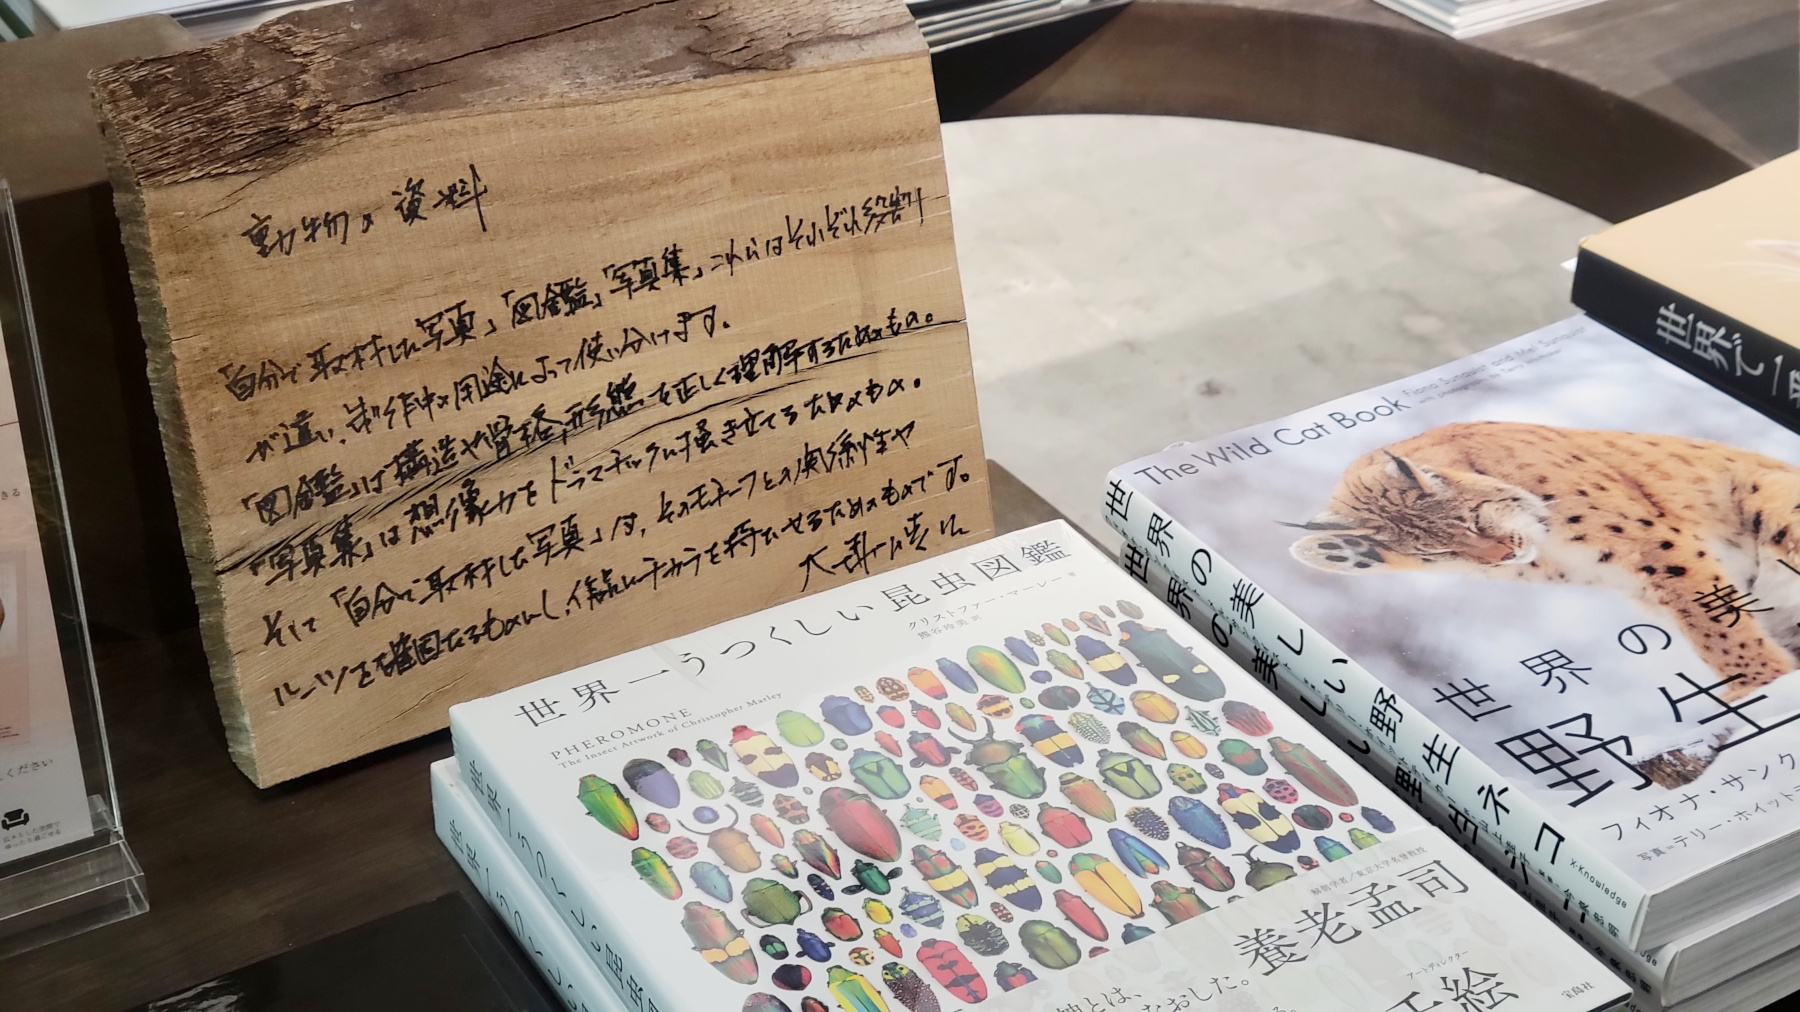 動物の資料
「自分で取材した写真」「図鑑」「写真集」これらはそれぞれ役割
が違い、制作中の用途によって使い分けます。
「図鑑」は構造や骨格、形態を正しく理解するためのもの。
「写真集」は想像力をドラマチックに掻き立てるためのもの。
そして「自分で取材した写真」は、そのモチーフとの関係性や
ルーツを確固たるものにし、作品にチカラを持たせるためのものです。
世界一うつくしい昆虫図鑑
クリストファー・マーレー 著
熊谷玲美 訳
PHEROMONE
The Insect Artwork of Christopher Marley
解剖学者/東京大学名誉教授
養老孟司
なおした。
アートディレクター
千絵
宝島社
世界一うつくしい昆虫図
The Wild Cat Book
Fiona Sunquist and Mel Sunquist
世界の美し
野生
フィオナ・サンク
写真=テリー・ホイット
世界の美しい野生ネコ
X-Knowledge
世界の美しい野生ネ
世界で一
ください